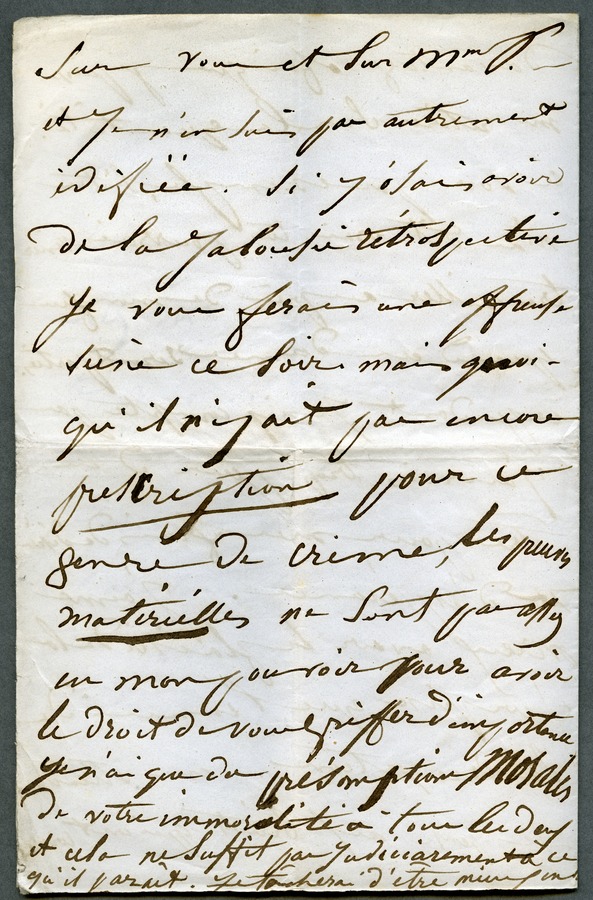 Sur vous et sur Mme P.
et je n'en suis pas autrement
édifiée. Si j'osais avoir
de la jalousie rétrospective
je vous ferais une affreuse
scène ce soir. mais quoi-
qu'il n'y ait pas encore
prescription pour ce
genre de crime, les preuves
matérielles ne sont pas assez
en mon pouvoir pour avoir
le droit de vous griffer d'importance
je n'ai que des présomptions morales
de votre immoralité à tous les deux
et cela ne suffit pas judiciairement à ce
qu'il paraît. je tacherai d'être mieux